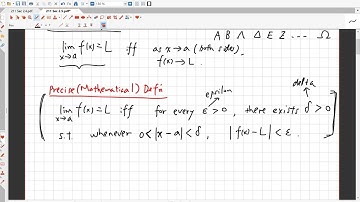 A B Λ Δ E Z ... Ω
lim f(x) = L iff as x→a (both sides)
x→a f(x)→L.
Precise (Mathematical) Defn
epsilon delta
lim f(x) = L iff for every ε > 0, there exists δ > 0
x→a
s.t. whenever 0 < |x - a| < δ, |f(x) - L| < ε.